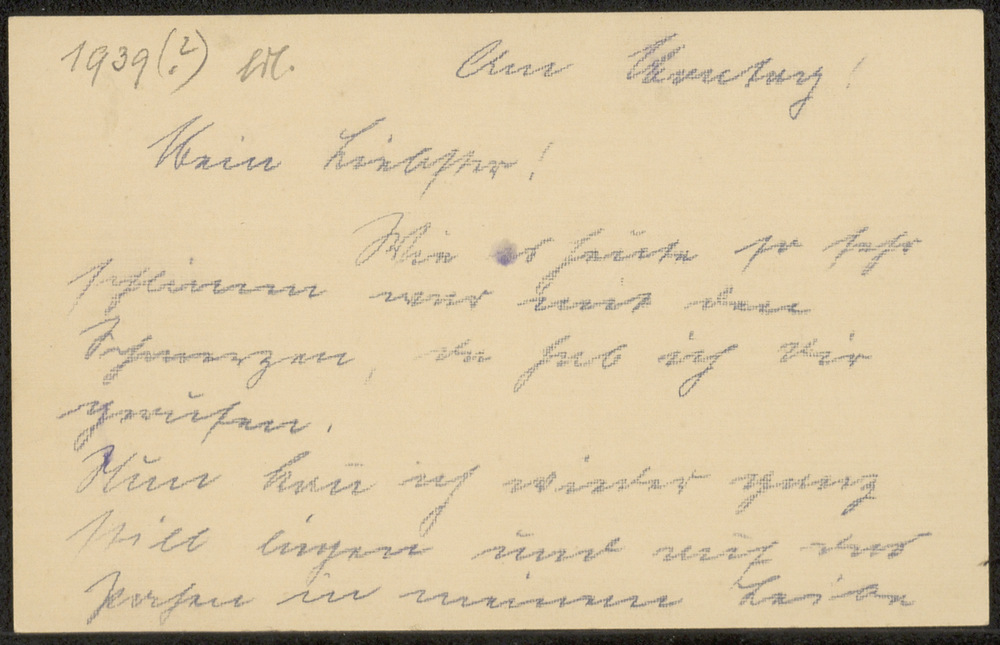 1939(?) Am Montag!
Mein Liebster!
Wie es heute so sehr
schlimm war mit den
Schmerzen, da hab ich Dir
gerufen.
Nun kan̄ ich wieder ganz
still liegen und auf das
Pochen in meinem Leibe